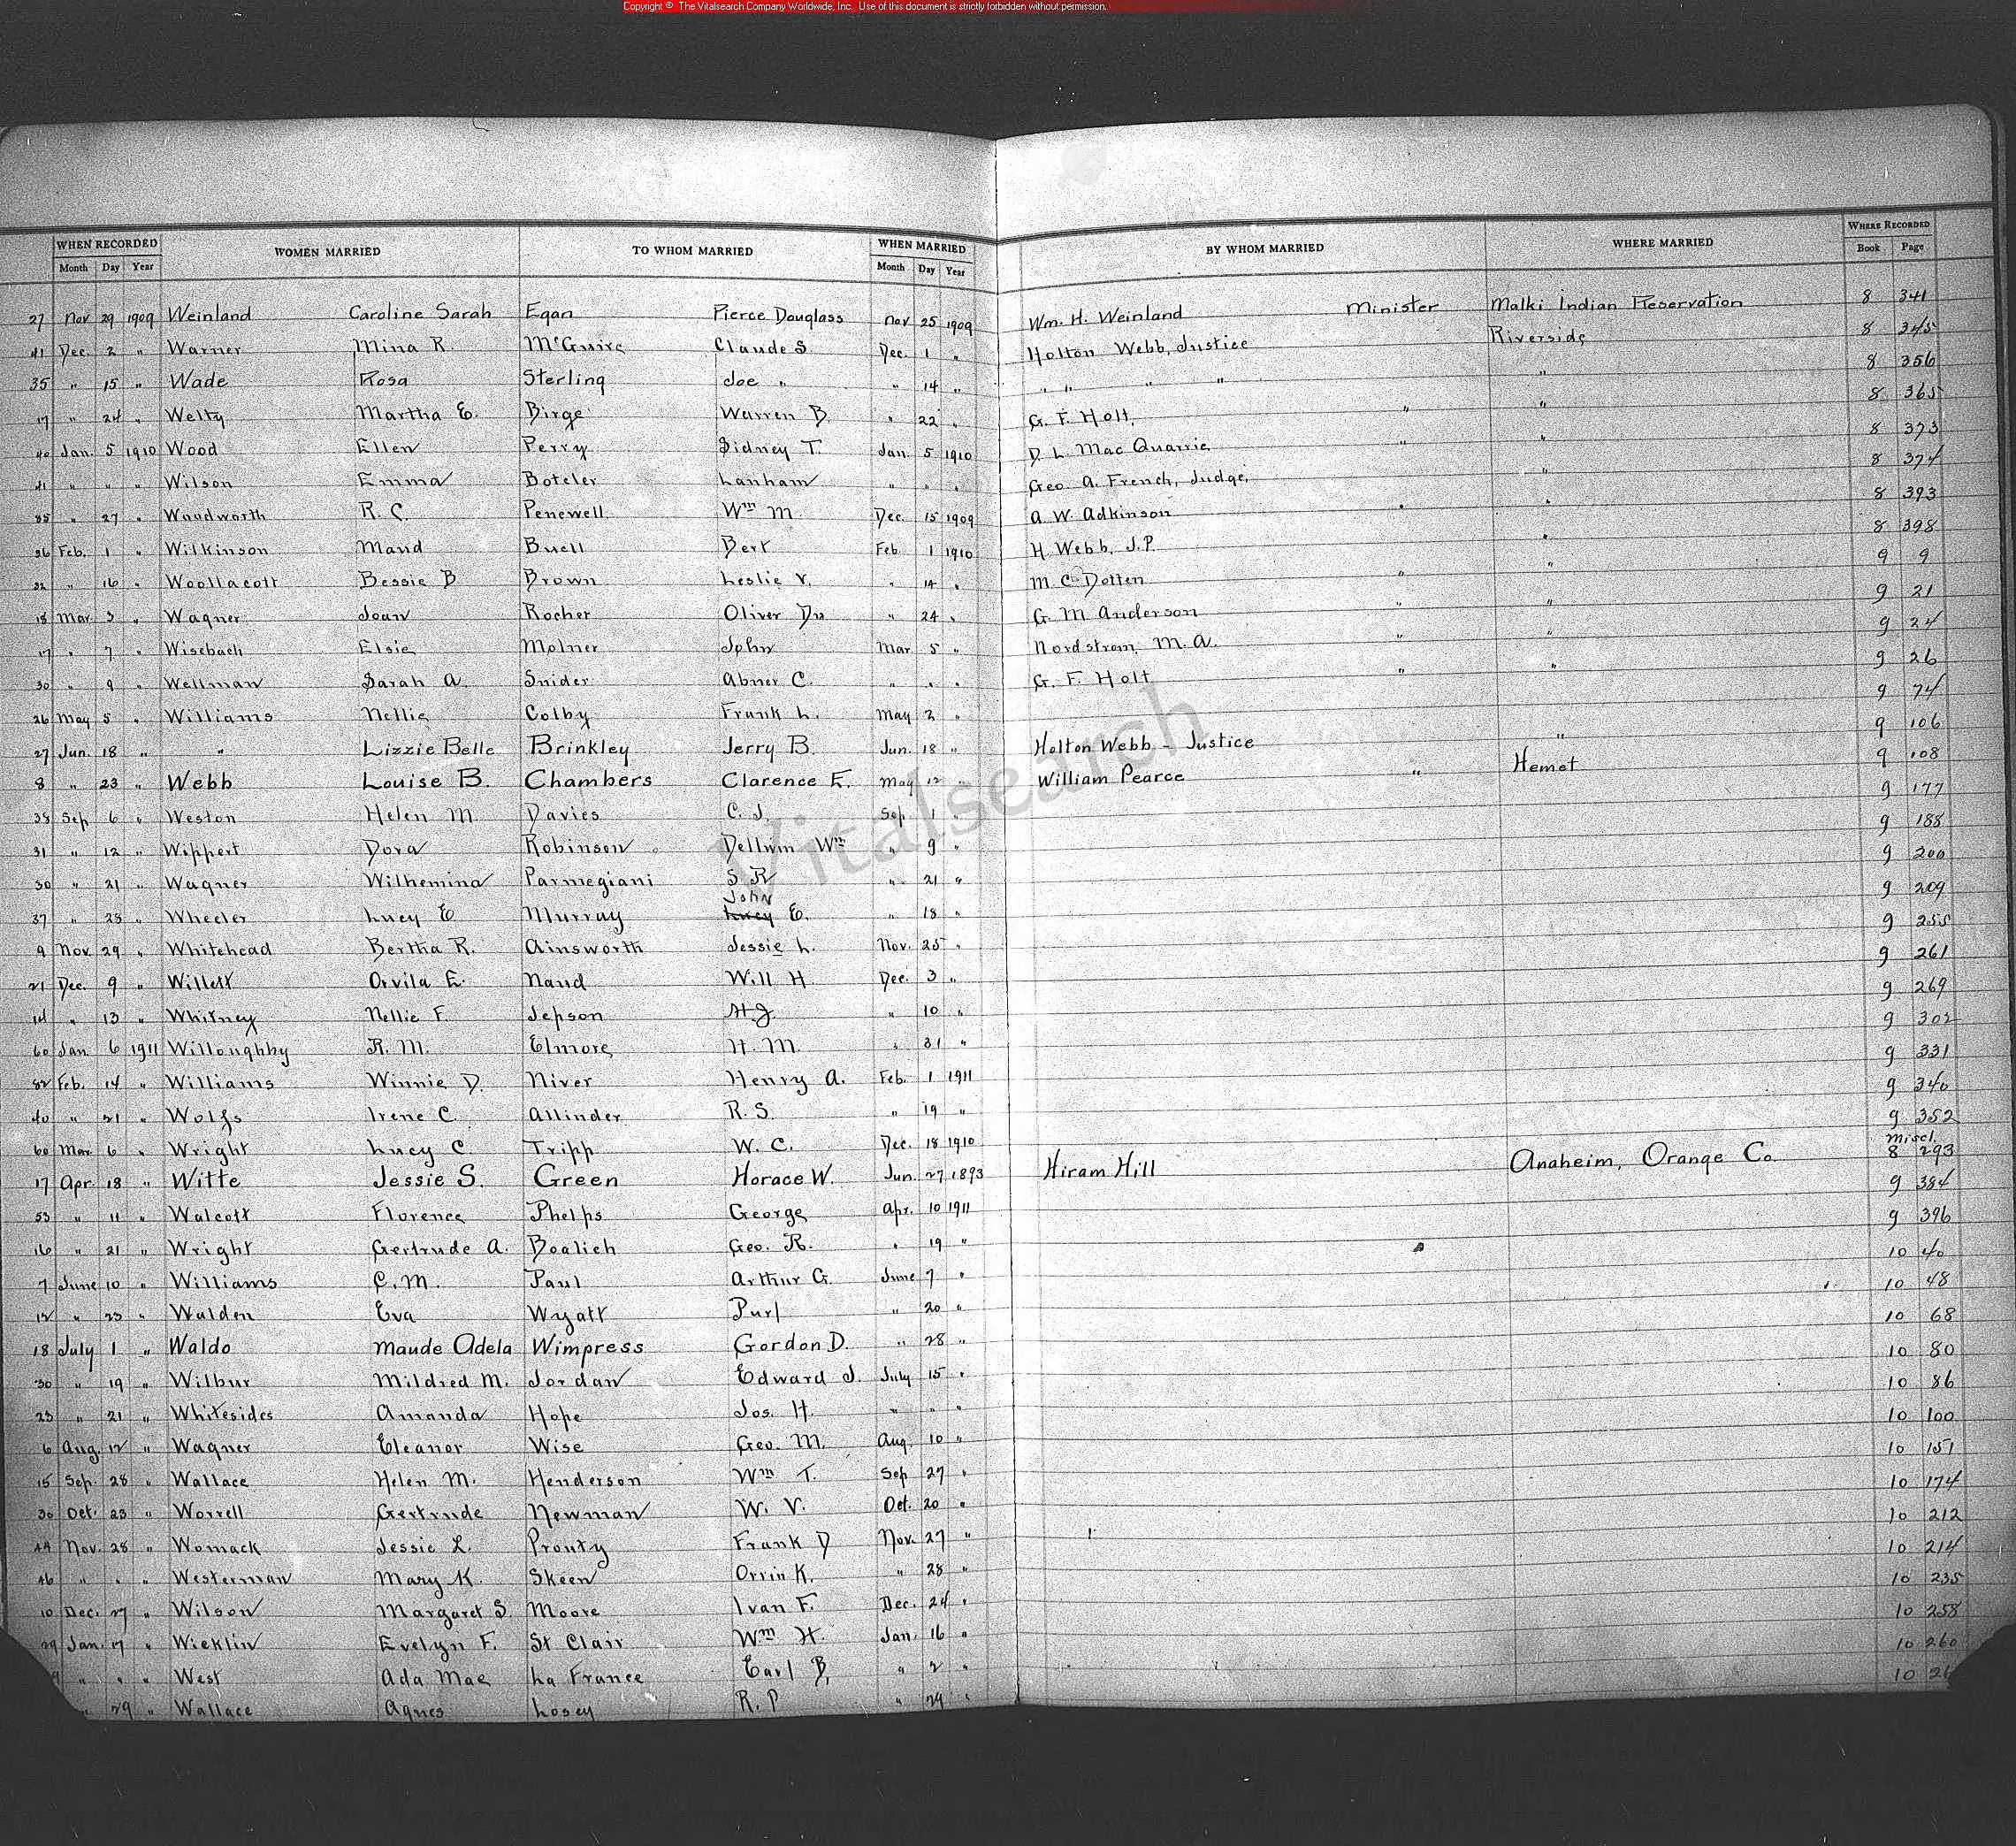 Copyright © The Vitalsearch Company Worldwide, Inc. Use of this document is strictly forbidden without permission.
WHEN RECORDED WOMEN MARRIED TO WHOM MARRIED WHEN MARRIED BY WHOM MARRIED WHERE MARRIED WHERE RECORDED
Month Day Year Month Day Year Book Page
27 Nov 29 1909 Weinland Caroline Sarah Egan Pierce Douglass Nov 25 1909 Wm. H. Weinland Minister Malki Indian Reservation 8 341
41 Dec. 2 " Warner Mina R. McGuire Claude S Dec. 1 " Holton Webb, Justice Riverside 8 345
35 " 15 " Wade Rosa Sterling Joe " " 14 " " " " " " 8 356
17 " 24 " Welty Martha E. Birge Warren B. " 22 " G. F. Holt, " " 8 365
40 Jan. 5 1910 Wood Ellen Perry Sidney T. Jan. 5 1910 D. L. Mac Quarrie " " 8 373
41 " " " Wilson Emma Boteler Lanham " " " Geo. A. French, Judge, " 8 374
35 " 27 " Woodworth R. C. Penewell Wm M. Dec. 15 1909 A. W. Adkinson " " 8 393
36 Feb. 1 " Wilkinson Maud Buell Bert Feb 1 1910 H. Webb, J.P. " 8 398
32 " 16 " Woollacott Bessie B Brown Leslie V. " 14 " M. C. Dotten " " 9 9
18 Mar 3 " Wagner Joan Rocher Oliver Du " 24 " G. M. Anderson " " 9 21
17 " 7 " Wisebach Elsie Molner John Mar 5 " Nordstrom, M. A. " " 9 24
30 " 9 " Wellman Sarah A. Snider Abner C. " " " G. F. Holt " " 9 26
26 May 5 " Williams Nellie Colby Frank L. May 2 " 9 74
27 Jun. 18 " " Lizzie Belle Brinkley Jerry B. Jun. 18 " Holton Webb - Justice " 9 106
8 " 23 " Webb Louise B. Chambers Clarence E. May 12 " William Pearce " Hemet 9 108
38 Sep 6 " Weston Helen M Davies C. J. Sep 1 " 9 177
31 " 12 " Wippert Dora Robinson Dellwin Wm " 9 " 9 188
30 " 21 " Wagner Wilhemina Parmegiani S R " 21 " 9 200
John
37 " 23 " Wheeler Lucy E Murray Lucy E. " 18 " 9 209
9 Nov. 29 " Whitehead Bertha R. Ainsworth Jessie L. Nov. 25 " 9 255
21 Dec. 9 " Willett Orvila E. Nand Will H. Dec. 3 " 9 261
14 " 13 " Whitney Nellie F. Jepson H J. " 10 " 9 269
60 Jan 6 1911 Willoughby R. M. Elmore H. M. " 31 " 9 302
52 Feb. 14 " Williams Winnie D. Niver Henry A. Feb. 1 1911 9 331
40 " 21 " Wolfs Irene C. Allinder R. S. " 19 " 9 340
60 Mar. 6 " Wright Lucy C. Tripp W. C. Dec. 18 1910 9 352
17 Apr. 18 " Witte Jessie S. Green Horace W. Jun. 27 1893 Hiram Hill Anaheim, Orange Co. Miscl 8 293
53 " 11 " Walcott Florence Phelps George Apr. 10 1911 9 384
16 " 21 " Wright Gertrude A. Bealich Geo. R. " 19 " 9 396
7 June 10 " Williams C. M. Paul Arthur G. June 7 " 10 40
12 " 23 " Walden Eva Wyatt Purl " 20 " 10 48
18 July 1 " Waldo Maude Adela Wimpress Gordon D. " 28 " 10 68
30 " 19 " Wilbur Mildred M. Jordan Edward J. July 15 " 10 80
23 " 21 " Whitesides Amanda Hope Jos. H. " " " 10 86
6 Aug. 12 " Wagner Eleanor Wise Geo. M. Aug. 10 " 10 100
15 Sep. 28 " Wallace Helen M. Henderson Wm T. Sep 27 " 10 151
30 Oct. 23 " Worrell Gertrude Newman W. V. Oct. 20 " 10 174
44 Nov. 28 " Womack Jessie L. Prouty Frank D Nov. 27 " 10 212
46 " " " Westerman Mary K. Skeen Orrin K. " 28 " 10 214
10 Dec. 27 " Wilson Margaret S. Moore Ivan F. Dec. 24 " 10 235
29 Jan. 17 " Wicklin Evelyn F. St Clair Wm H. Jan. 16 " 10 258
" " " West Ada Mae La France Earl B, " 2 " 10 260
" 29 " Wallace Agnes Losey R. P " 29 " 10
Vitalsearch